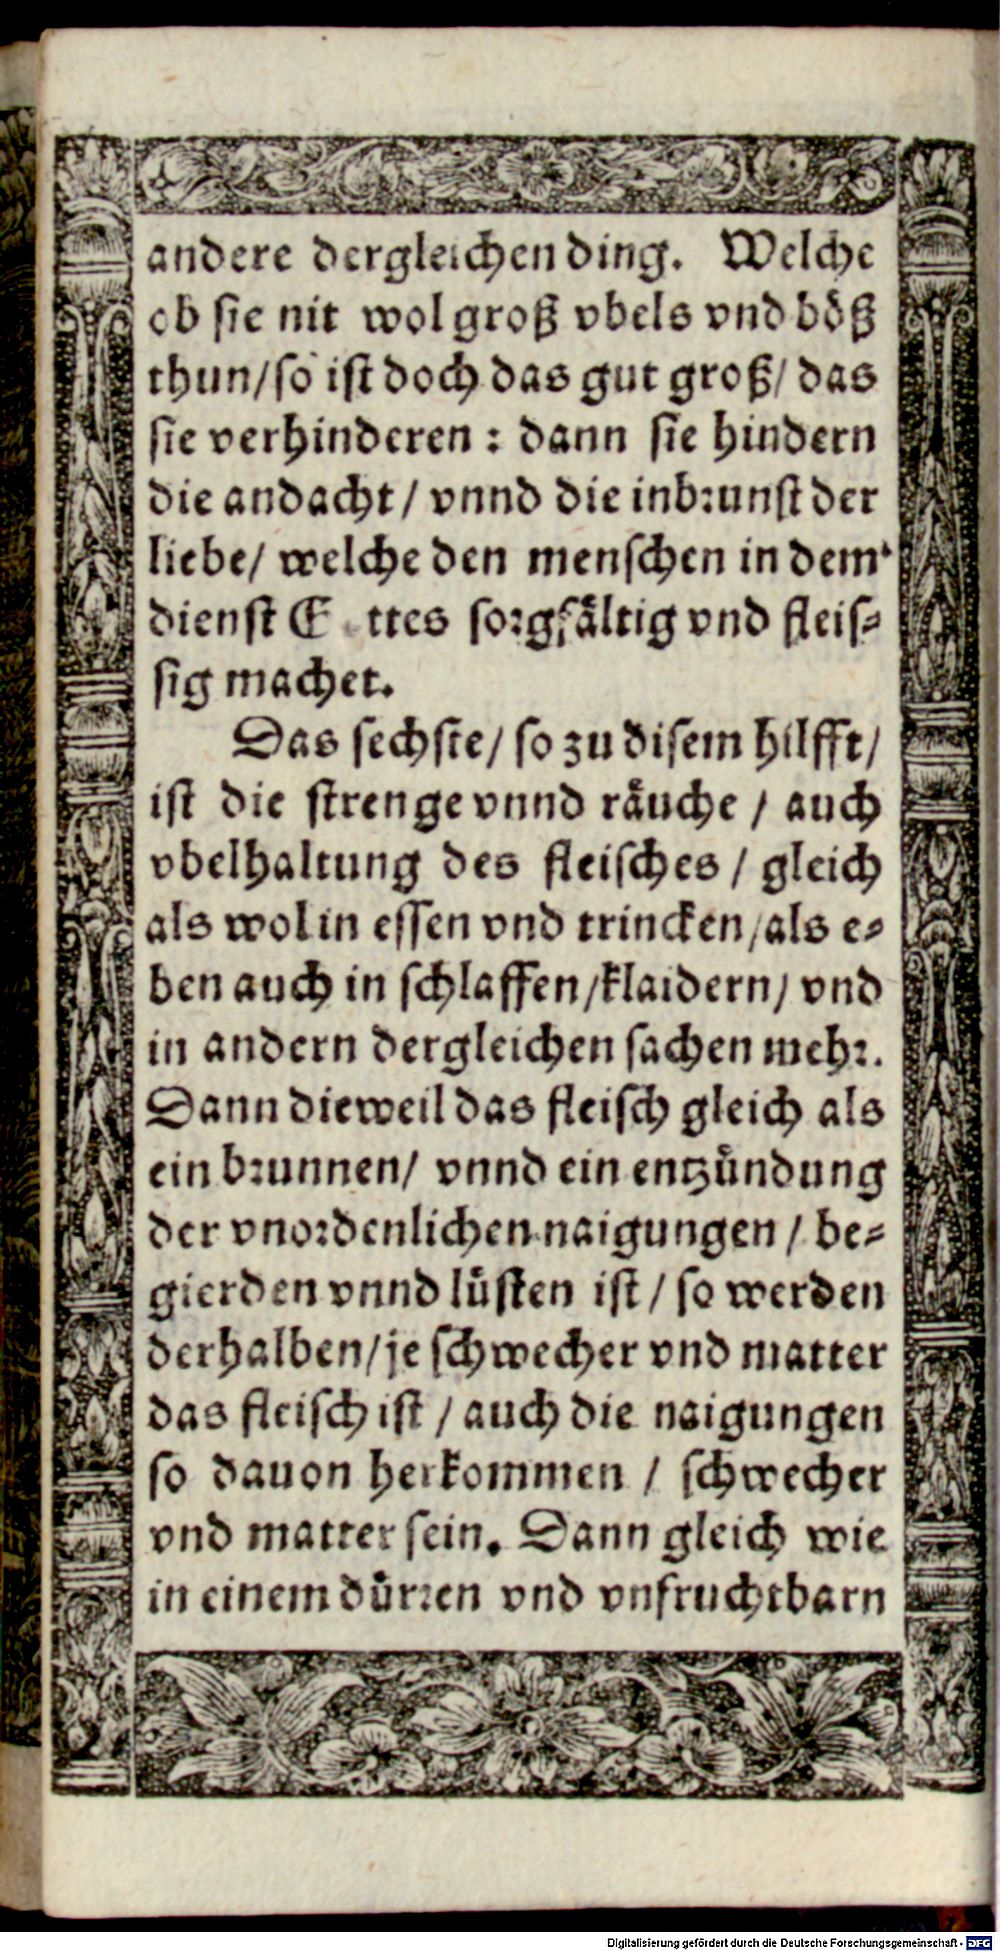 andere dergleichen ding. Welche
ob sie nit wol groß vbels vnd böß
thun/ so ist doch das gut groß/ das
sie verhinderen : dann sie hindern
die andacht/ vnnd die inbrunst der
liebe/ welche den menschen in dem
dienst sorgfältig vnd fleis-
sig machet.
Das sechste/ so zu disem hilfft/
ist die strenge vnnd räuche / auch
vbelhaltung des fleisches / gleich
als wol in essen vnd trincken/ als e-
ben auch in schlaffen/ klaidern/ vnd
in andern dergleichen sachen mehr.
Dann dieweil das fleisch gleich als
ein brunnen/ vnnd ein entzündung
der vnordenlichen naigungen / be-
gierden vnnd lüsten ist / so werden
derhalben/ je schwecher vnd matter
das fleisch ist / auch die naigungen
so dauon herkommen / schwecher
vnd matter sein. Dann gleich wie
in einem dürren vnd vnfruchtbarn
Digitalisierung gefördert durch die Deutsche Forschungsgemeinschaft - DFG